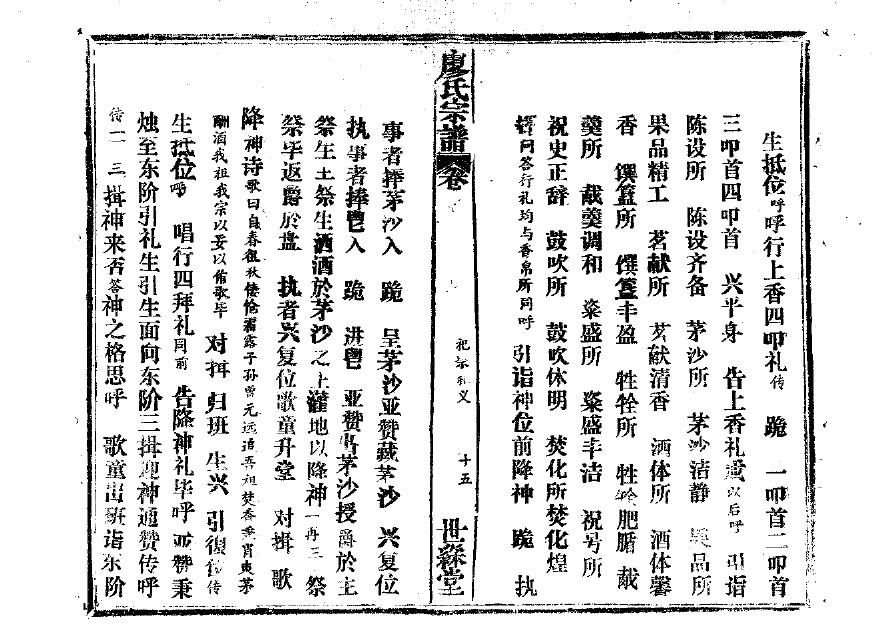 生抵位呼呼行上香四叩礼传 跪 一叩首二叩首
三叩首四叩首 兴平身 告上香礼以后呼 引指
陈设所 陈设齐备 茅沙所 茅沙洁静 果品所
果品精工 茗献所 茗献清香 酒体所 酒体馨
香 馔簋所 馔簋丰盈 牲牷所 牲牷肥腯 胾
羹所 胾羹调和 粢盛所 粢盛丰洁 祝号所
祝史正辞 鼓吹所 鼓吹休明 焚化所焚化煌
问答行礼均与香帛所同呼 引诣神位前降神 跪 执
廖氏宗谱 卷
祀 义
十五
世 堂
事者捧茅沙入 跪 呈茅沙亚赞藏茅沙 兴复位
执事者捧鬯入 跪 进鬯 亚赞 茅沙授爵於主
祭生主祭生酒酒於茅沙之上灌地以降神一再三 祭
祭毕返爵於盘 执者兴复位歌童升堂 对揖 歌
降神诗歌曰自春徂秋悽怆霜露子孙曾元远追吾祖焚香 茅
酹酒我祖我宗以妥以侑歌毕 对揖 归班 生兴 引復位传
生抵位呼 唱行四拜礼同前 告降神礼毕呼 亚赞秉
烛至东阶引礼生引生面向东阶三揖迎神通赞传呼
传一 三揖神来否答神之格思呼 歌童出班诣东阶